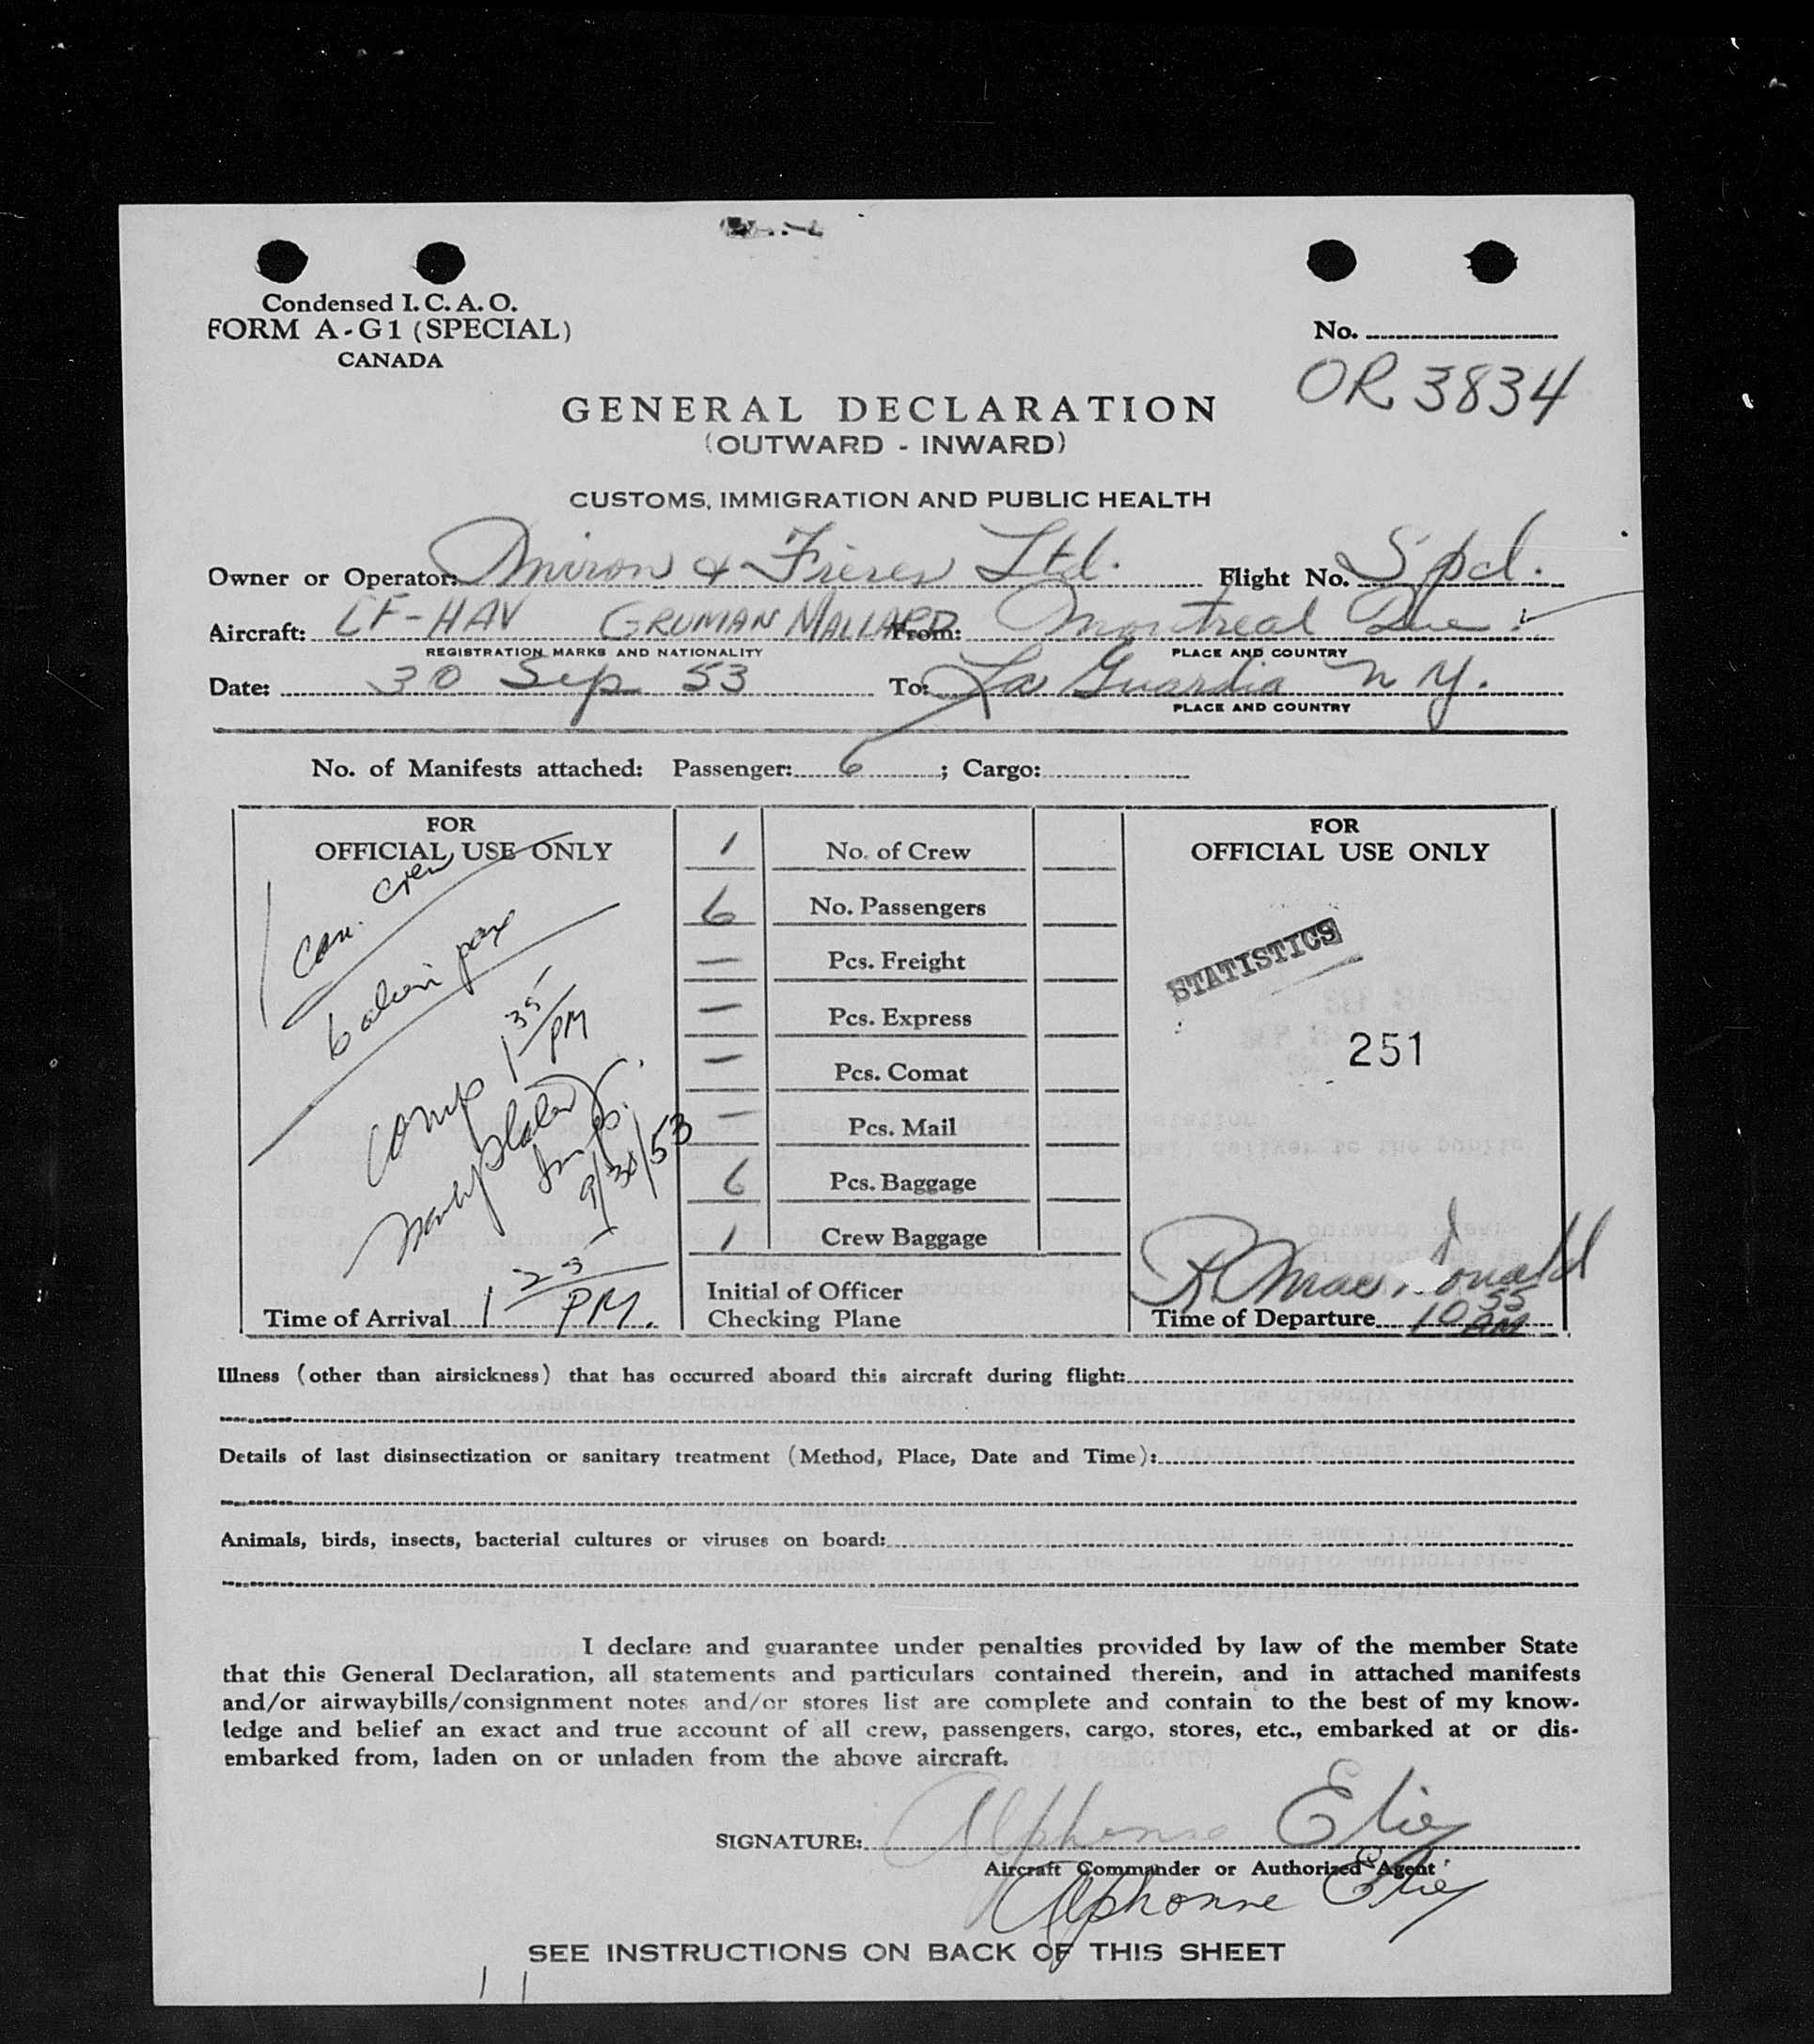 Condensed I. C. A. O.
FORM A-G1 (SPECIAL)
CANADA
No.
OR 3834
GENERAL DECLARATION
(OUTWARD - INWARD)
CUSTOMS, IMMIGRATION AND PUBLIC HEALTH
Owner or Operator: Miron & Freres Ltd. Flight No. Spcl.
Aircraft: CF-HAV GRUMAN MALLARD From: Montreal Que.
REGISTRATION MARKS AND NATIONALITY PLACE AND COUNTRY
Date: 30 Sep 53 To: La Guardia N Y.
PLACE AND COUNTRY
No. of Manifests attached: Passenger: 6 ; Cargo:
FOR
OFFICIAL USE ONLY
1 Can. crew
6 alien pax
Comp 1 35 PM
Insp.
9/30/53
Time of Arrival 1 25 PM.
1 No. of Crew
6 No. Passengers
— Pcs. Freight
— Pcs. Express
— Pcs. Comat
— Pcs. Mail
6 Pcs. Baggage
1 Crew Baggage
Initial of Officer
Checking Plane
FOR
OFFICIAL USE ONLY
STATISTICS
251
R MacDonald
Time of Departure 10 55 AM
Illness (other than airsickness) that has occurred aboard this aircraft during flight:
Details of last disinsectization or sanitary treatment (Method, Place, Date and Time):
Animals, birds, insects, bacterial cultures or viruses on board:
I declare and guarantee under penalties provided by law of the member State
that this General Declaration, all statements and particulars contained therein, and in attached manifests
and/or airwaybills/consignment notes and/or stores list are complete and contain to the best of my know-
ledge and belief an exact and true account of all crew, passengers, cargo, stores, etc., embarked at or dis-
embarked from, laden on or unladen from the above aircraft.
SIGNATURE: Alphonse Eliey
Aircraft Commander or Authorized Agent
Alphonse Eliey
SEE INSTRUCTIONS ON BACK OF THIS SHEET